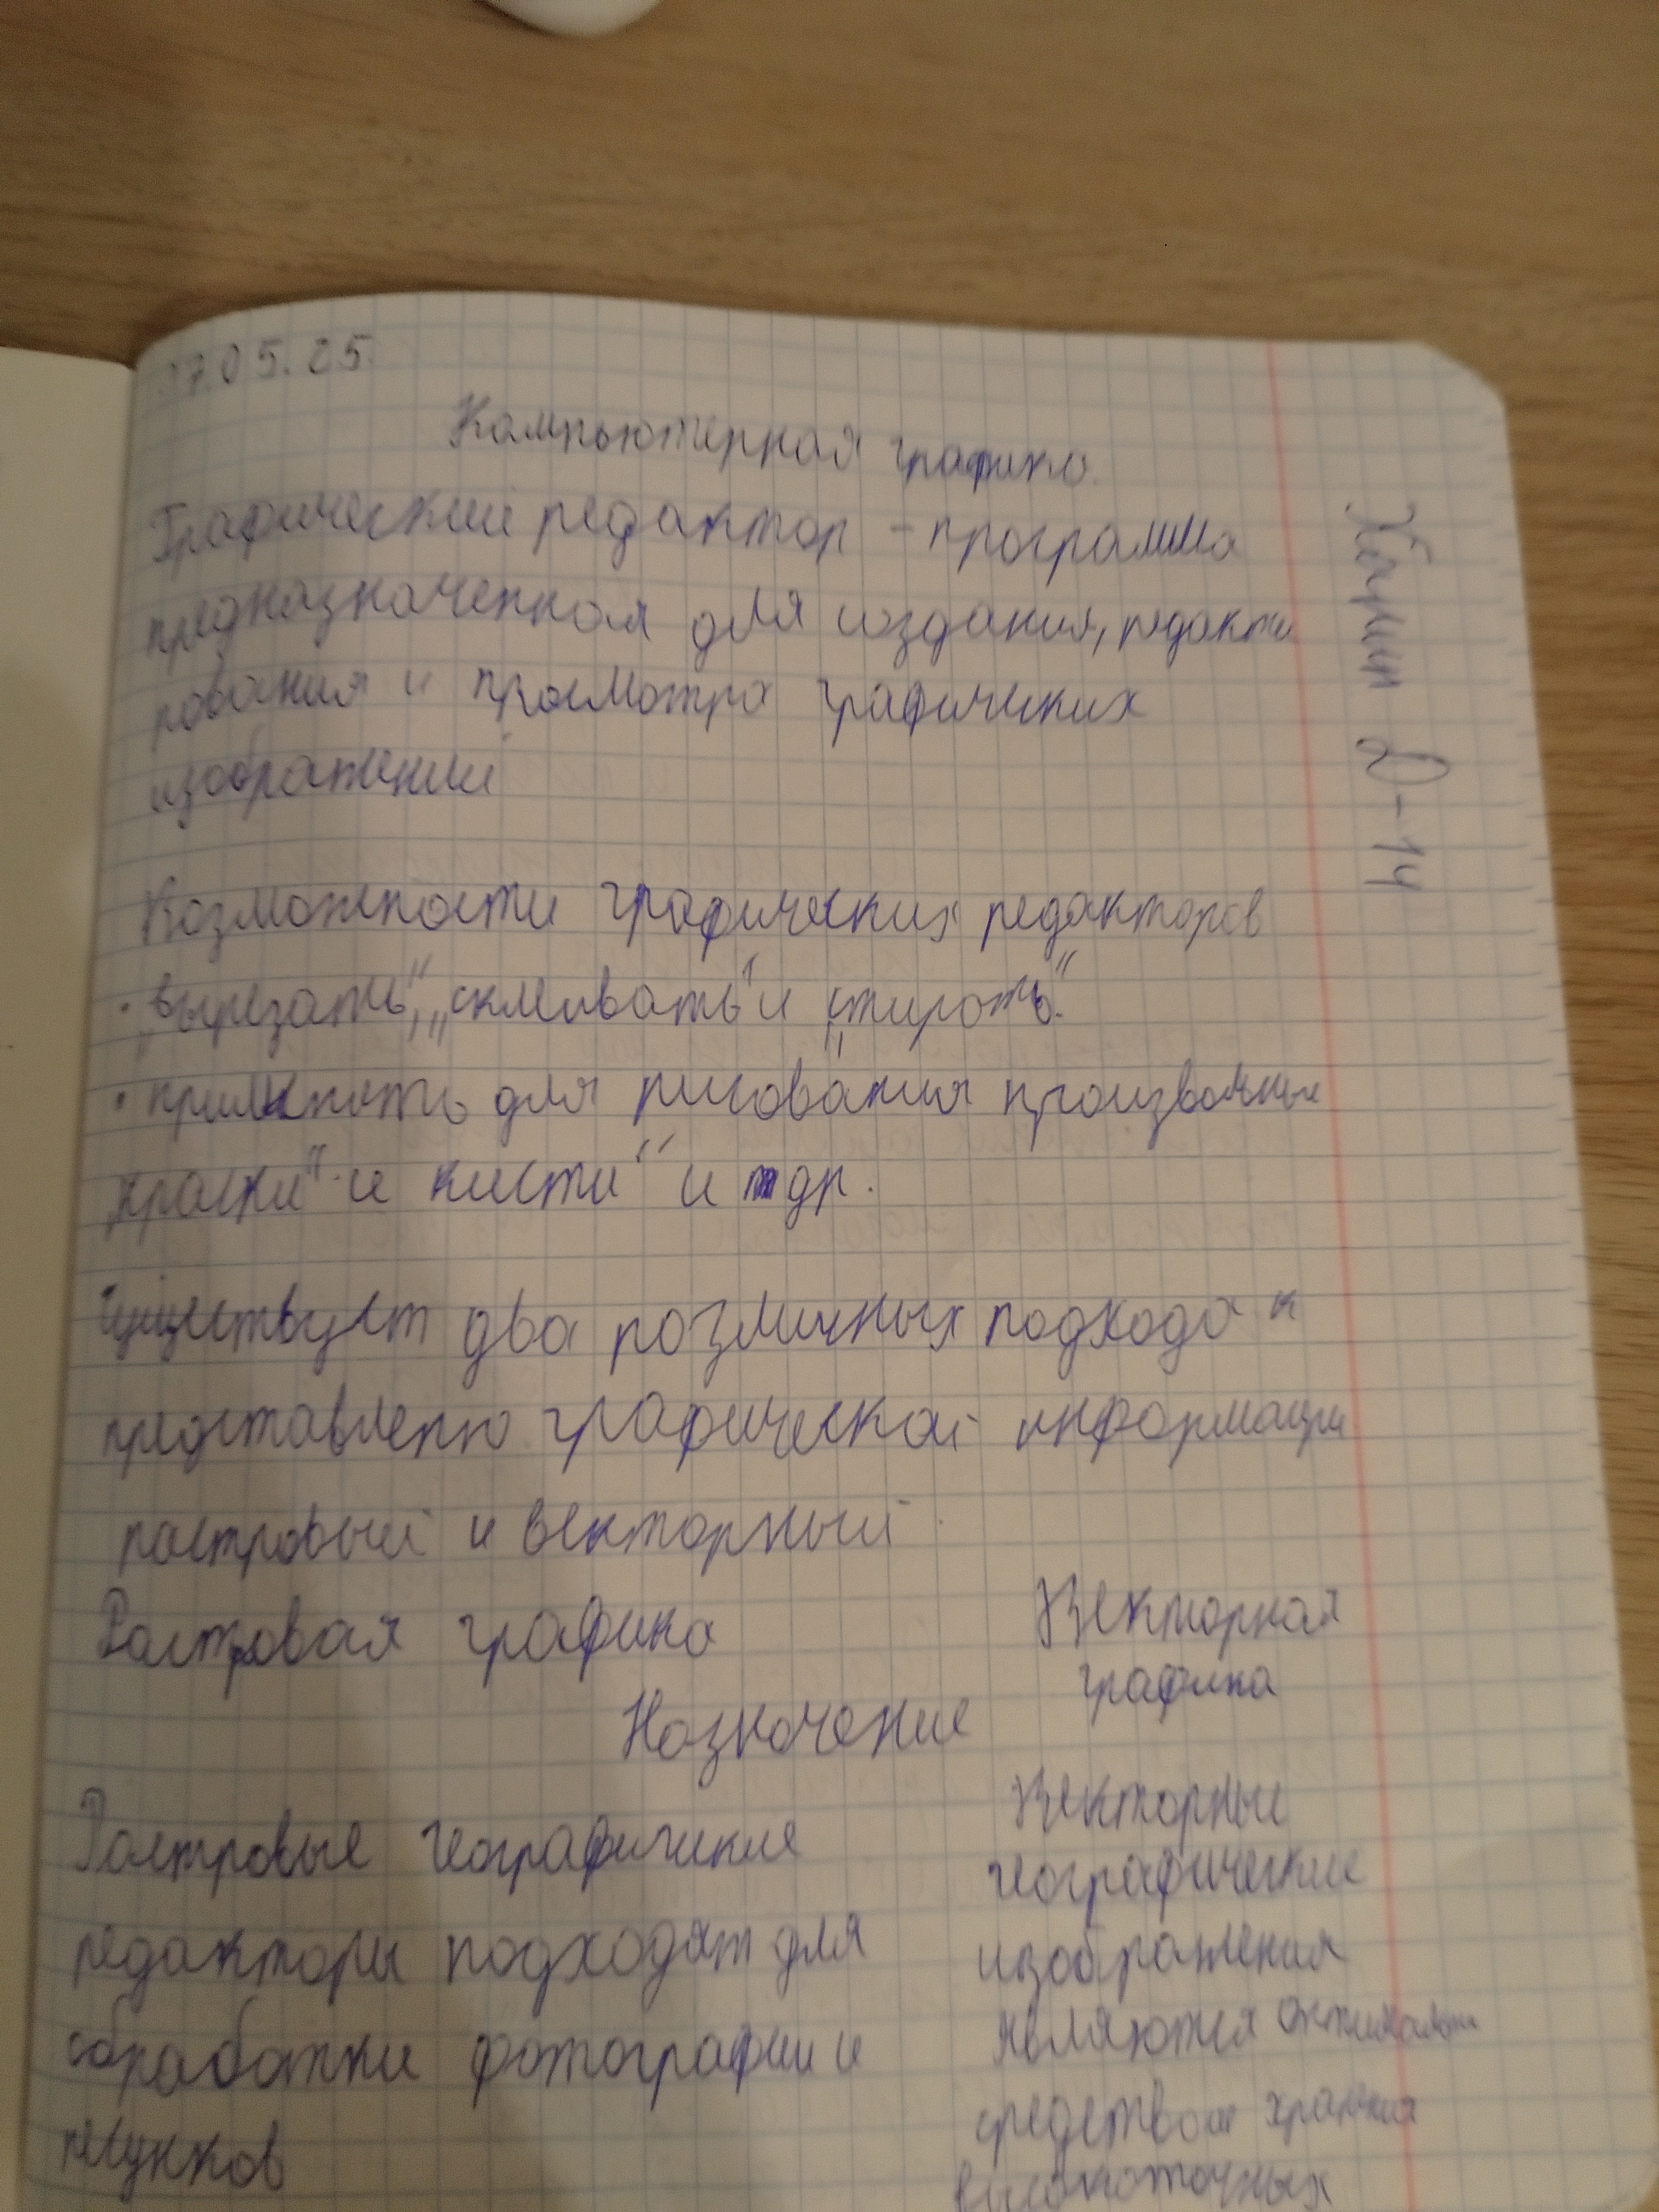 17.05.25.
Компьютерная графика.
Графический редактор – программа
предназначенная для создания, редакти
рования и просмотра графических
изображений
Возможности графических редакторов
• „вырезать“, „склеивать“ и „стирать.“
• применять для рисования произвольные
„краски“ и кисти“ и др.
Существует два различных подхода к
представлению графической информации
растровый и векторный
Растровая графика
Векторная
графика
Назначение
Растровые географические
редакторы подходят для
обработки фотографии и
рисунков
Векторные
географические
изображения
являются оптимальным
средством хранения
высокоточных
Д-14